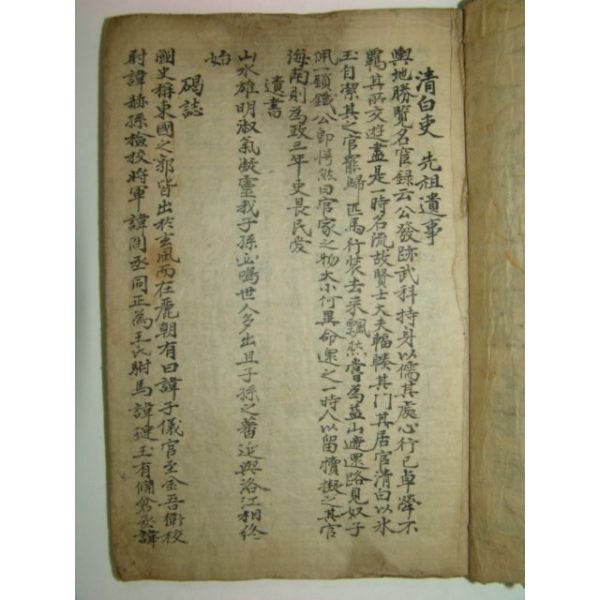 清白吏 先祖遺事
輿地勝覽名宦錄云公發跡武科持身以儒其處心行己卓犖不
羈其所交遊盡是一時名流故賢士大夫輻輳其門其居官清白以氷
玉自潔其之官罷歸匹馬行裝去來飄然嘗為益山遞還路見奴子
佩一顆鐵公即愕然曰官家之物大小何異命還之一時人以留犢擬之其官
海南則為政三年吏畏民愛
遺書
山水雄明淑氣凝靈我子孫立鳴世人多出且子孫之蕃延與洛江相終
始
碣誌
國史稱東國之郭皆出於玄風而在麗朝有曰諱子儀官至金吾衛校
尉諱赫孫檢校將軍 諱閏丞同正為王氏駙馬諱璉玉有備倉丞諱